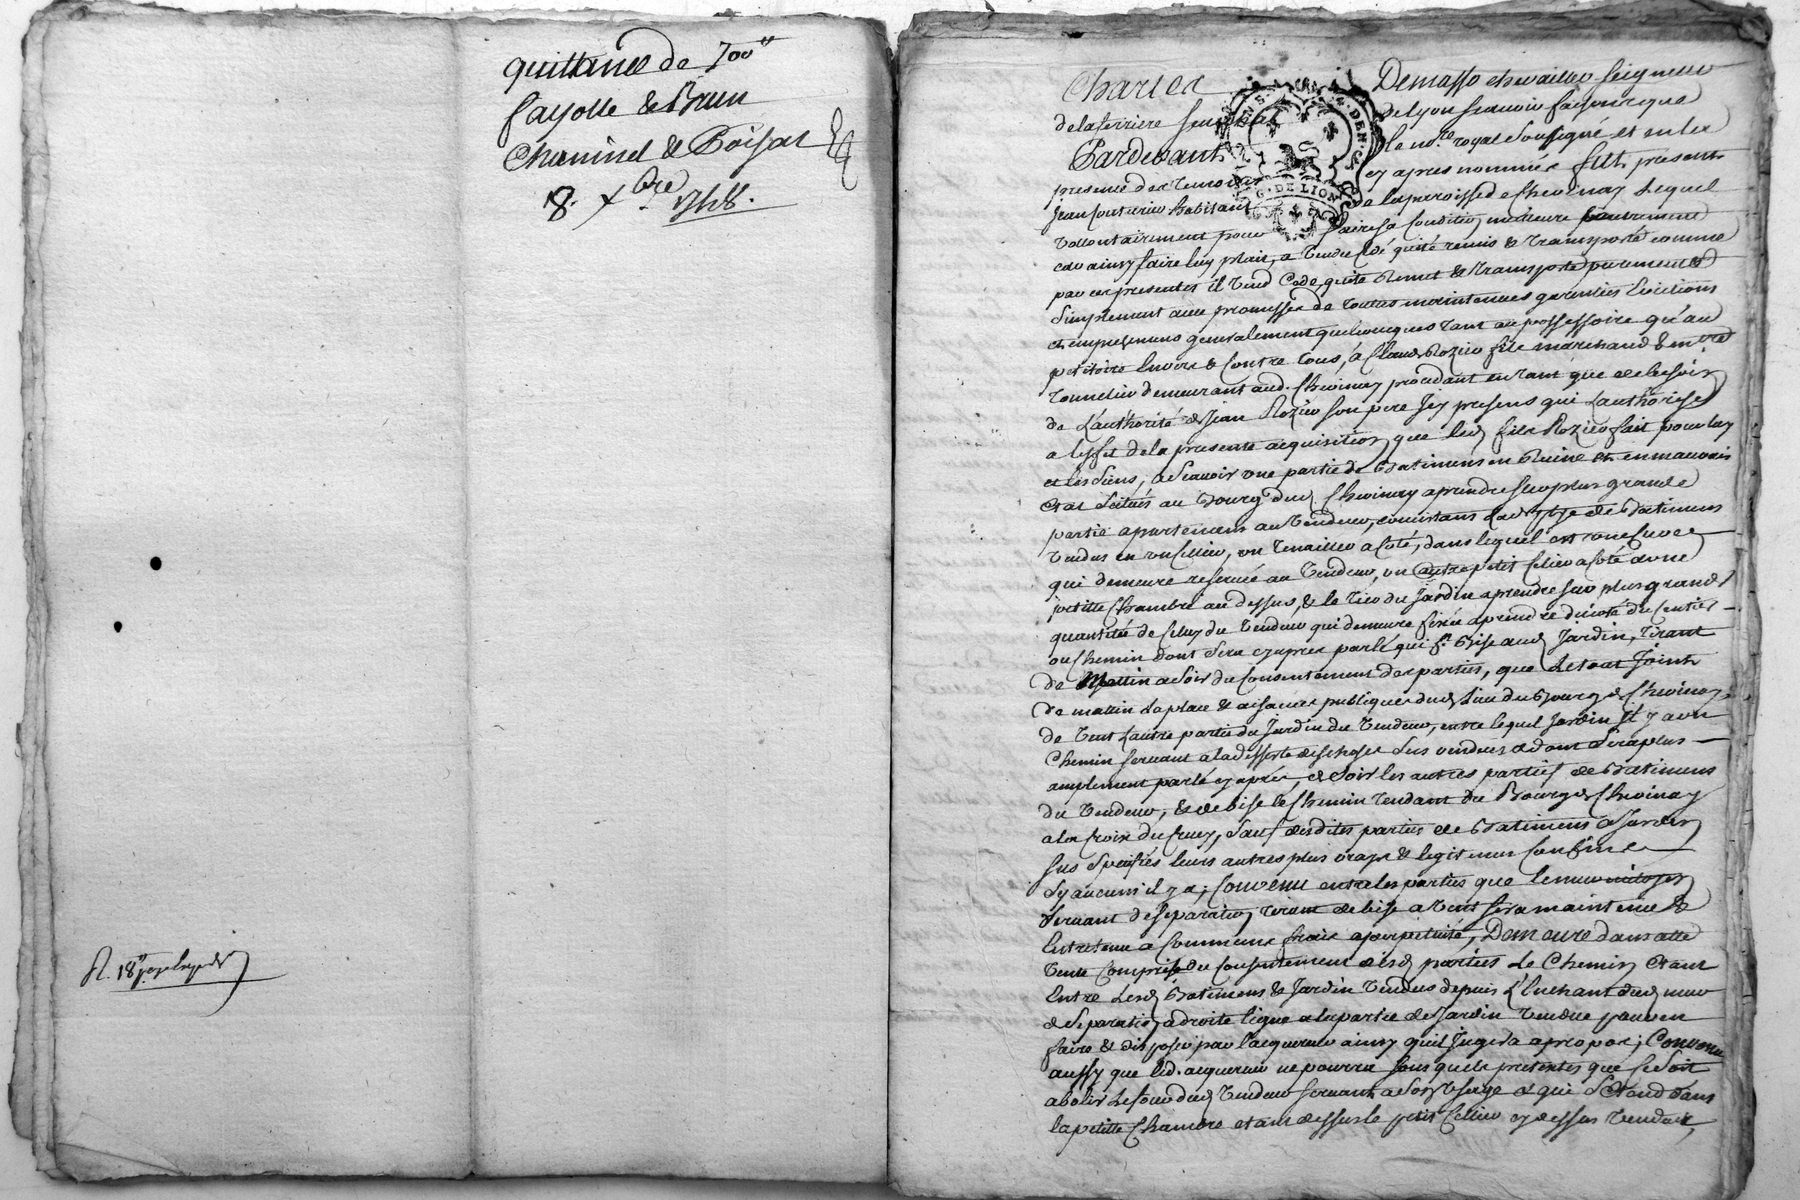 quittance de 700#
fayolle & Brun
Cheminel & Poisat
8. xbre 1748.
Charles Demasso chevailler seigneur
delaferriere senechal de lyon scavoir faisons que
Pardevant le nore. royal soussigné et en la
presence des temoins cy apres nommés fut present
jean couturier habitant de la paroisse de Chevinay lequel
vollontairement pour faire sa condition meilleure
car ainsy faire luy plait, a vendu cédé quité remis & transporté comme
par ces presentes il vend cede quite remet & transporte purement &
simplement avec promesse de toutes maintenues garenties évictions
et empechemens generalement quelconques tant au possessoire qu'au
petitoire envers & contre tous, à Claude Rozier fils marchand & mtre
tonnelier demeurant aud. Chevinay procedant en tant que de besoin
de l'authorité de Jean Rozier son pere Jcy present qui l'authorise
a l'effet de la presente acquisition que led. fils Rozier fait pour luy
et les siens, ascavoir une partie de batimens en ruine et en mauvais
etat scitués au bourg dud. Chevinay aprendre sur plus grande
partie apartenans au vendeur, consistans lad. partie de batimens
vendus en un cellier, un tenailler a coté, dans lequel est une cuve
qui demeure reservée au vendeur, un autre petit celier a coté avec
petitte chambre au dessus, & le tier du jardin aprendre sur plus grande
quantité de celuy du vendeur qui demeure fixée aprendre du coté du sentier
ou chemin dont sera cy apres parlé qui st. bise aud. Jardin, tirant
de mattin a soir du consentement des parties, que le tout joint
de mattin la place & aisances publiques dud. lieu du bourg de Chevinay,
de vent l'autre partie du jardin du vendeur, entre lequel jardin il y a un
chemin servant a la desserte des choses sus vendues & dont sera plus
amplement parlé cy après, de soir les autres parties de batimens
du vendeur, & de bise le chemin tendant du Bourg de Chevinay
a la croix du cruy, sauf desdites parties de batimens & jardin
sus specifiés leurs autres plus vrays & legitimes confins
sy aucuns il y a; convenu entre les parties que le mur mitoyen
servant de separation tirant de bise a vent sera maintenu &
entretenu a communs frais a perpetuité, Demeure dans cette
vente comprise du consentement desd. parties le chemin etant
entre lesd. batimens & jardin vendus depuis l'enchant dud. mur
de separation a droite ligne a la partie de jardin vendue pour en
faire & disposer par l'acquereur ainsy quil jugera apropos; Convenu
aussy que led. acquereur ne pourra sous quels pretextes que ce soit
abolir le four dud. vendeur servant a son usage & qui s'etend dans
la petitte chambre etant dessus le petit cellier cy dessus vendue,
R. 18s